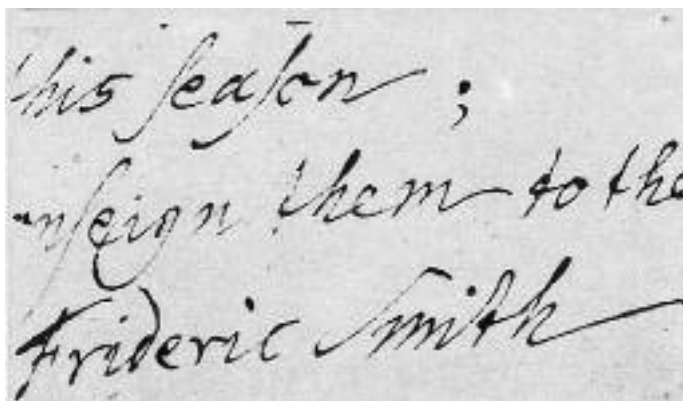 this ſeaſon ;
nſeign them to the
Frideric Smith